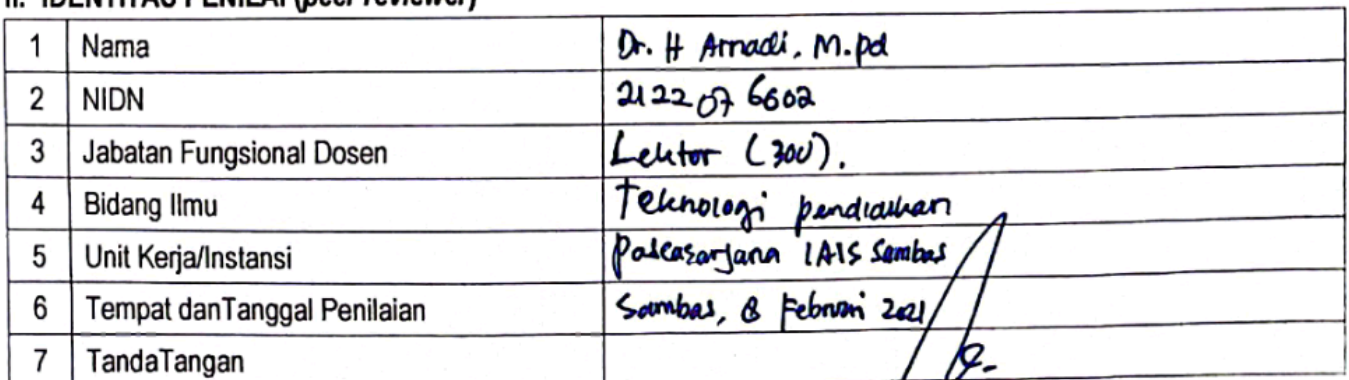 II. IDENTITAS PENILAI (peer reviewer)
1 Nama Dr. H Arnadi, M.pd
2 NIDN 2122076602
3 Jabatan Fungsional Dosen Lektor (300).
4 Bidang Ilmu Teknologi pendidikan
5 Unit Kerja/Instansi Pascasarjana IAIS Sambas
6 Tempat danTanggal Penilaian Sambas, 8 Februari 2021
7 TandaTangan